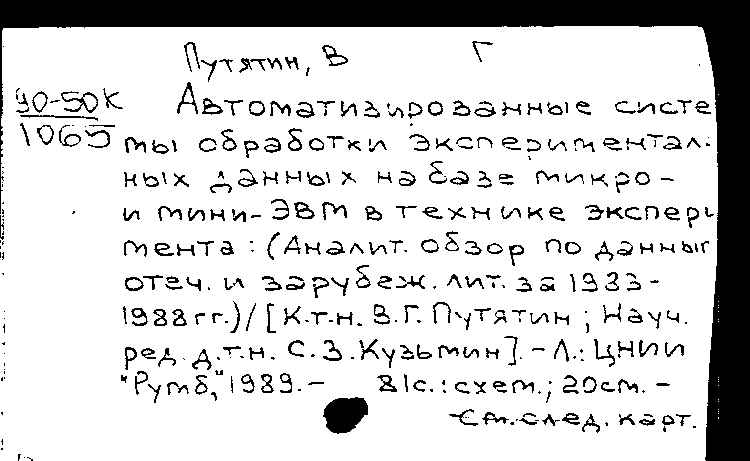 Путятин, В Г
90-50К Автоматизированные систе
1065 мы обработки экспериментал.
ных данных на базе микро-
и мини-ЭВМ в технике экспери
мента: (Аналит. обзор по данным
отеч. и зарубеж. лит. за 1983-
1988 гг.) / [К.т.н. В.Г. Путятин; Науч.
ред. д.т.н. С.З. Кузьмин]. - Л.: ЦНИИ
"Румб", 1989. - 81с.: схем.; 20см. -
См. след. карт.